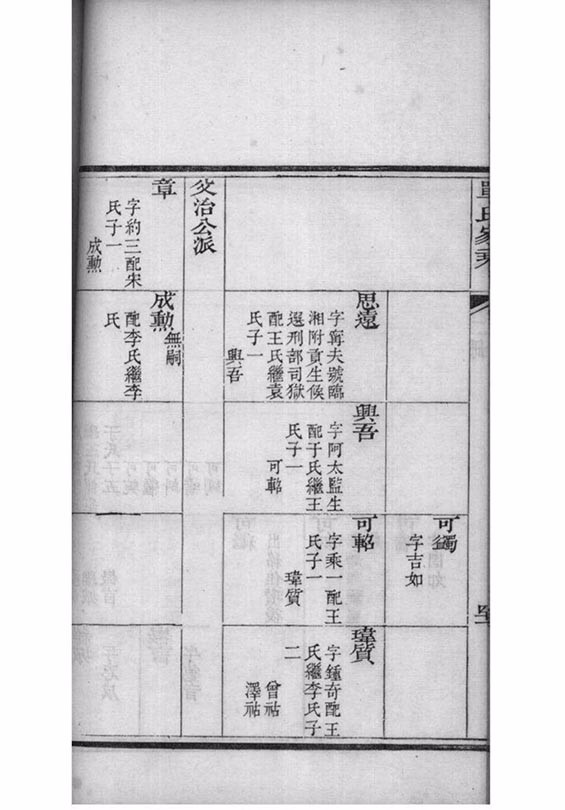 單氏家乘
可獨
字吉如
思遠
字甯夫號臨
湘附貢生候
選刑部司獄
配王氏繼袁
氏子一
興吾
興吾
字阿太監生
配于氏繼王
氏子一
可軺
可軺
字乘一配王
氏子一
瑋質
瑋質
字鍾奇配王
氏繼李氏子
二
曾祜
澤祜
文治公派
章
字約三配宋
氏子一
成勲
成勲無嗣
配李氏繼李
氏